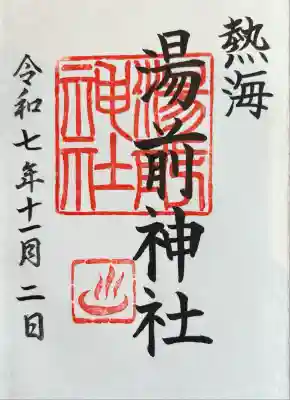 熱海
湯前神社
湯前
神社
令和七年十一月二日